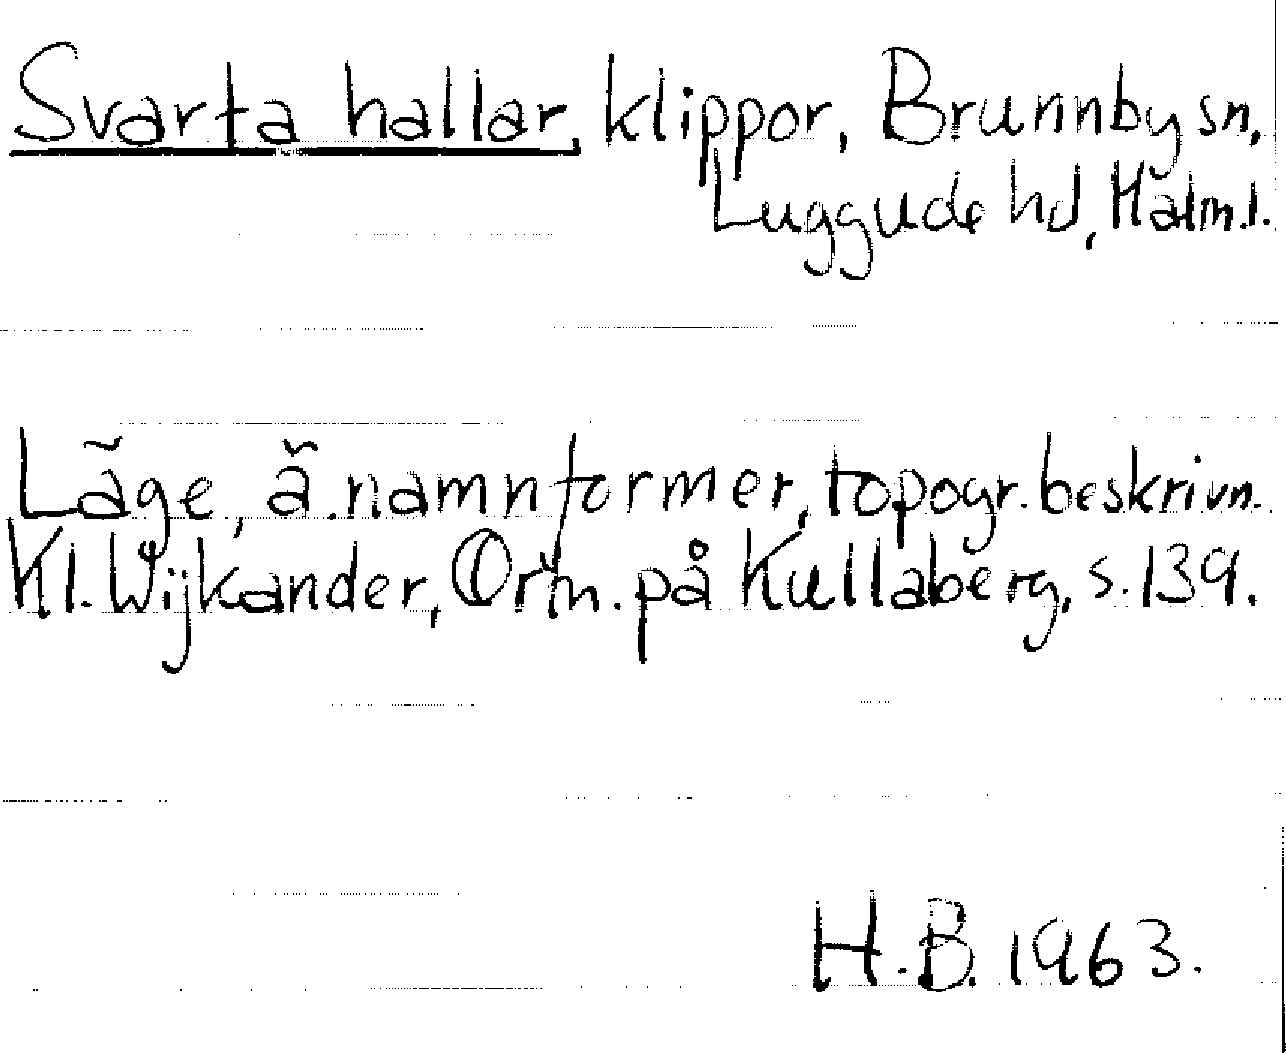 Svarta hallar, klippor, Brunnby sn,
Luggude hd, Malm.l.
Läge, ä. namnformer, topogr. beskrivn.
Kl. Wijkander, Ortn. på Kullaberg, s. 139.
H.B. 1963.